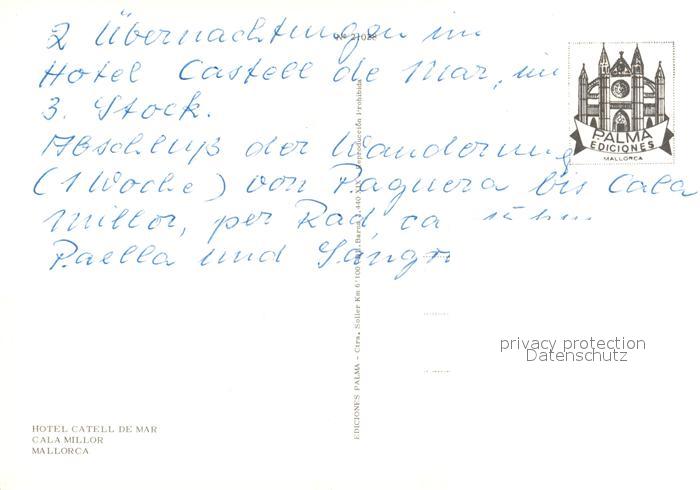 2 Übernachtungen im
Hotel Castell de Mar, im
3. Stock.
Abschluß der Wanderung
(1 Woche) von Paguera bis Cala
Millor, per Rad, ca
Paella und
PALMA
EDICIONES
MALLORCA
EDICIONES PALMA - Ctra. Soller Km 6'100 Reproducción Prohibida
privacy protection
Datenschutz
HOTEL CATELL DE MAR
CALA MILLOR
MALLORCA